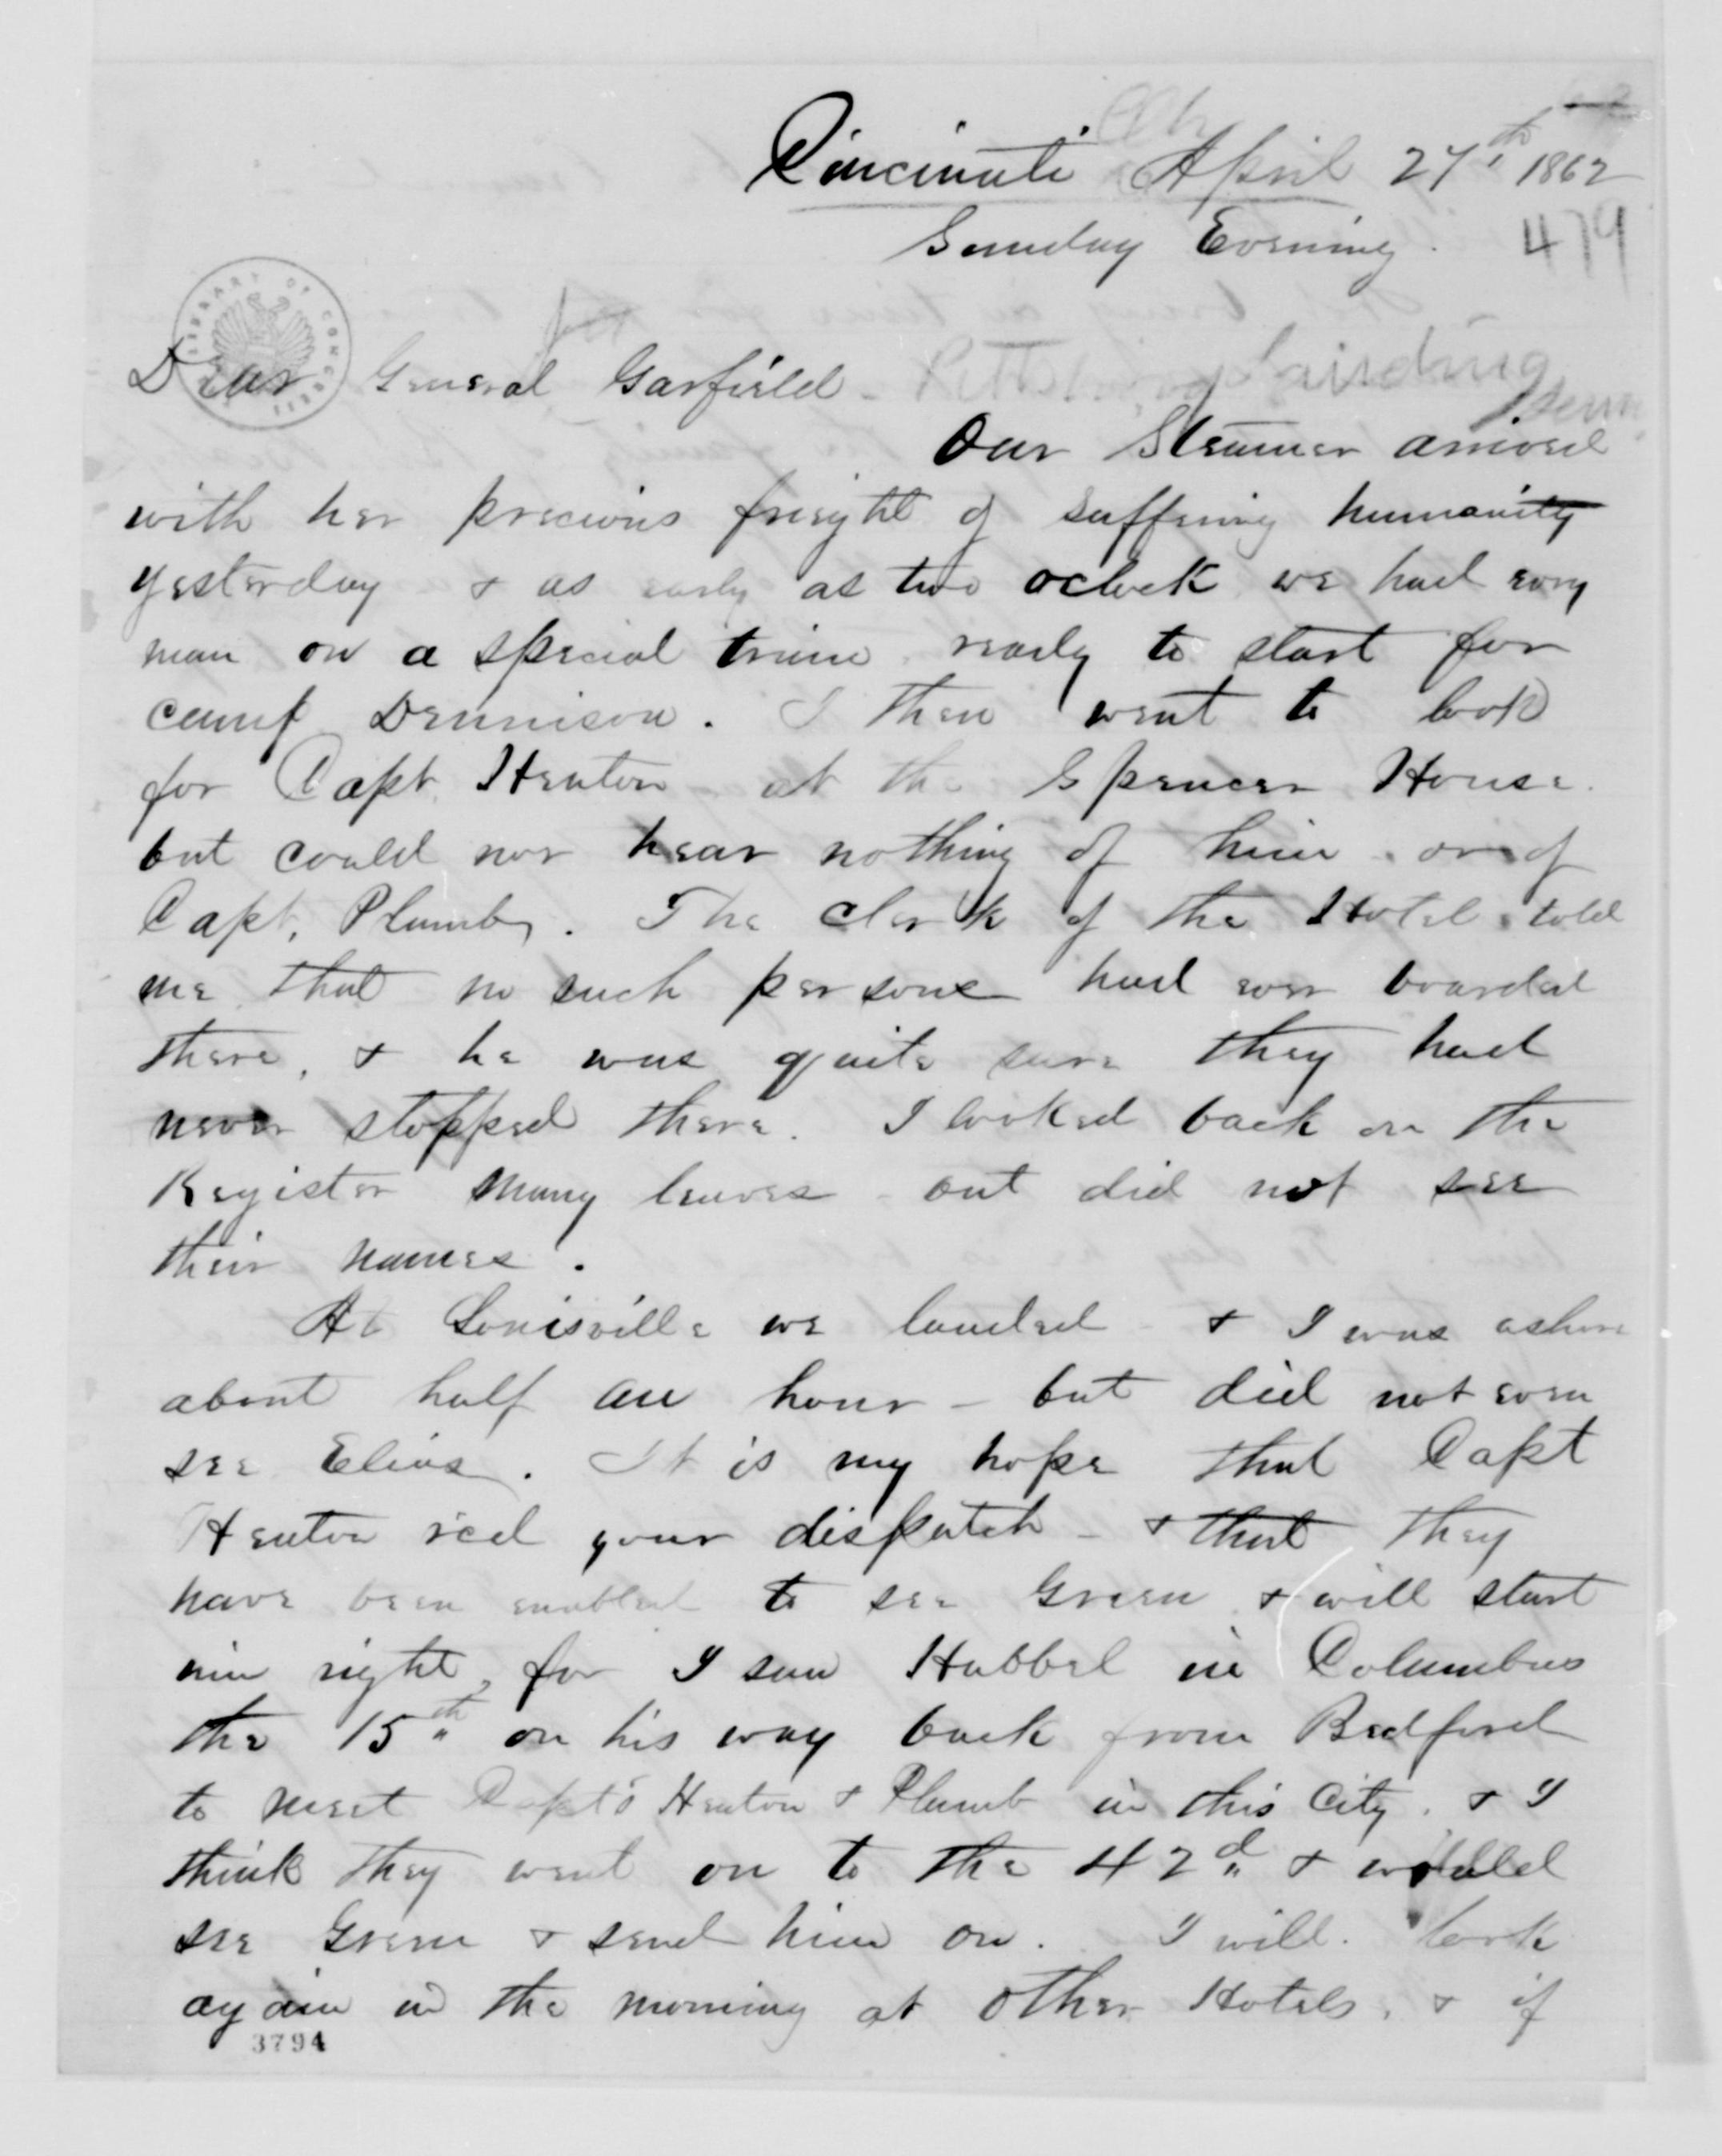 Cincinnati April 27th 1862
Sunday Evening. 479
Dear General Garfield
Pittsburg Landing
Tenn
Our Steamer arrived
with her precious freight of suffering humanity
yesterday & as early as two oclock we had every
man on a special traine ready to start for
camp Dennison. I then went to look
for Capt Heaton at the Spencer House.
but could nor hear nothing of him or of
Capt. Plumb. The clerk of the Hotel told
me that no such persone had ever boarded
there, & he was quite sure they had
never stopped there. I looked back on the
Register many leaves - but did not see
their names.
At Louisville we landed - & I was ashore
about half an hour - but did not even
see Elias. It is my hope that Capt
Heaton r'cd your dispatch - & that they
have been enabled to see Green & will start
him right, for I saw Hubbel in Columbus
the 15th on his way back from Bedford
to meet Capts Heaton & Plumb in this City. & I
think they went on to the 42d & would
see Green & send him on. I will look
again in the morning at other Hotels. & if
3794
LIBRARY OF CONGRESS